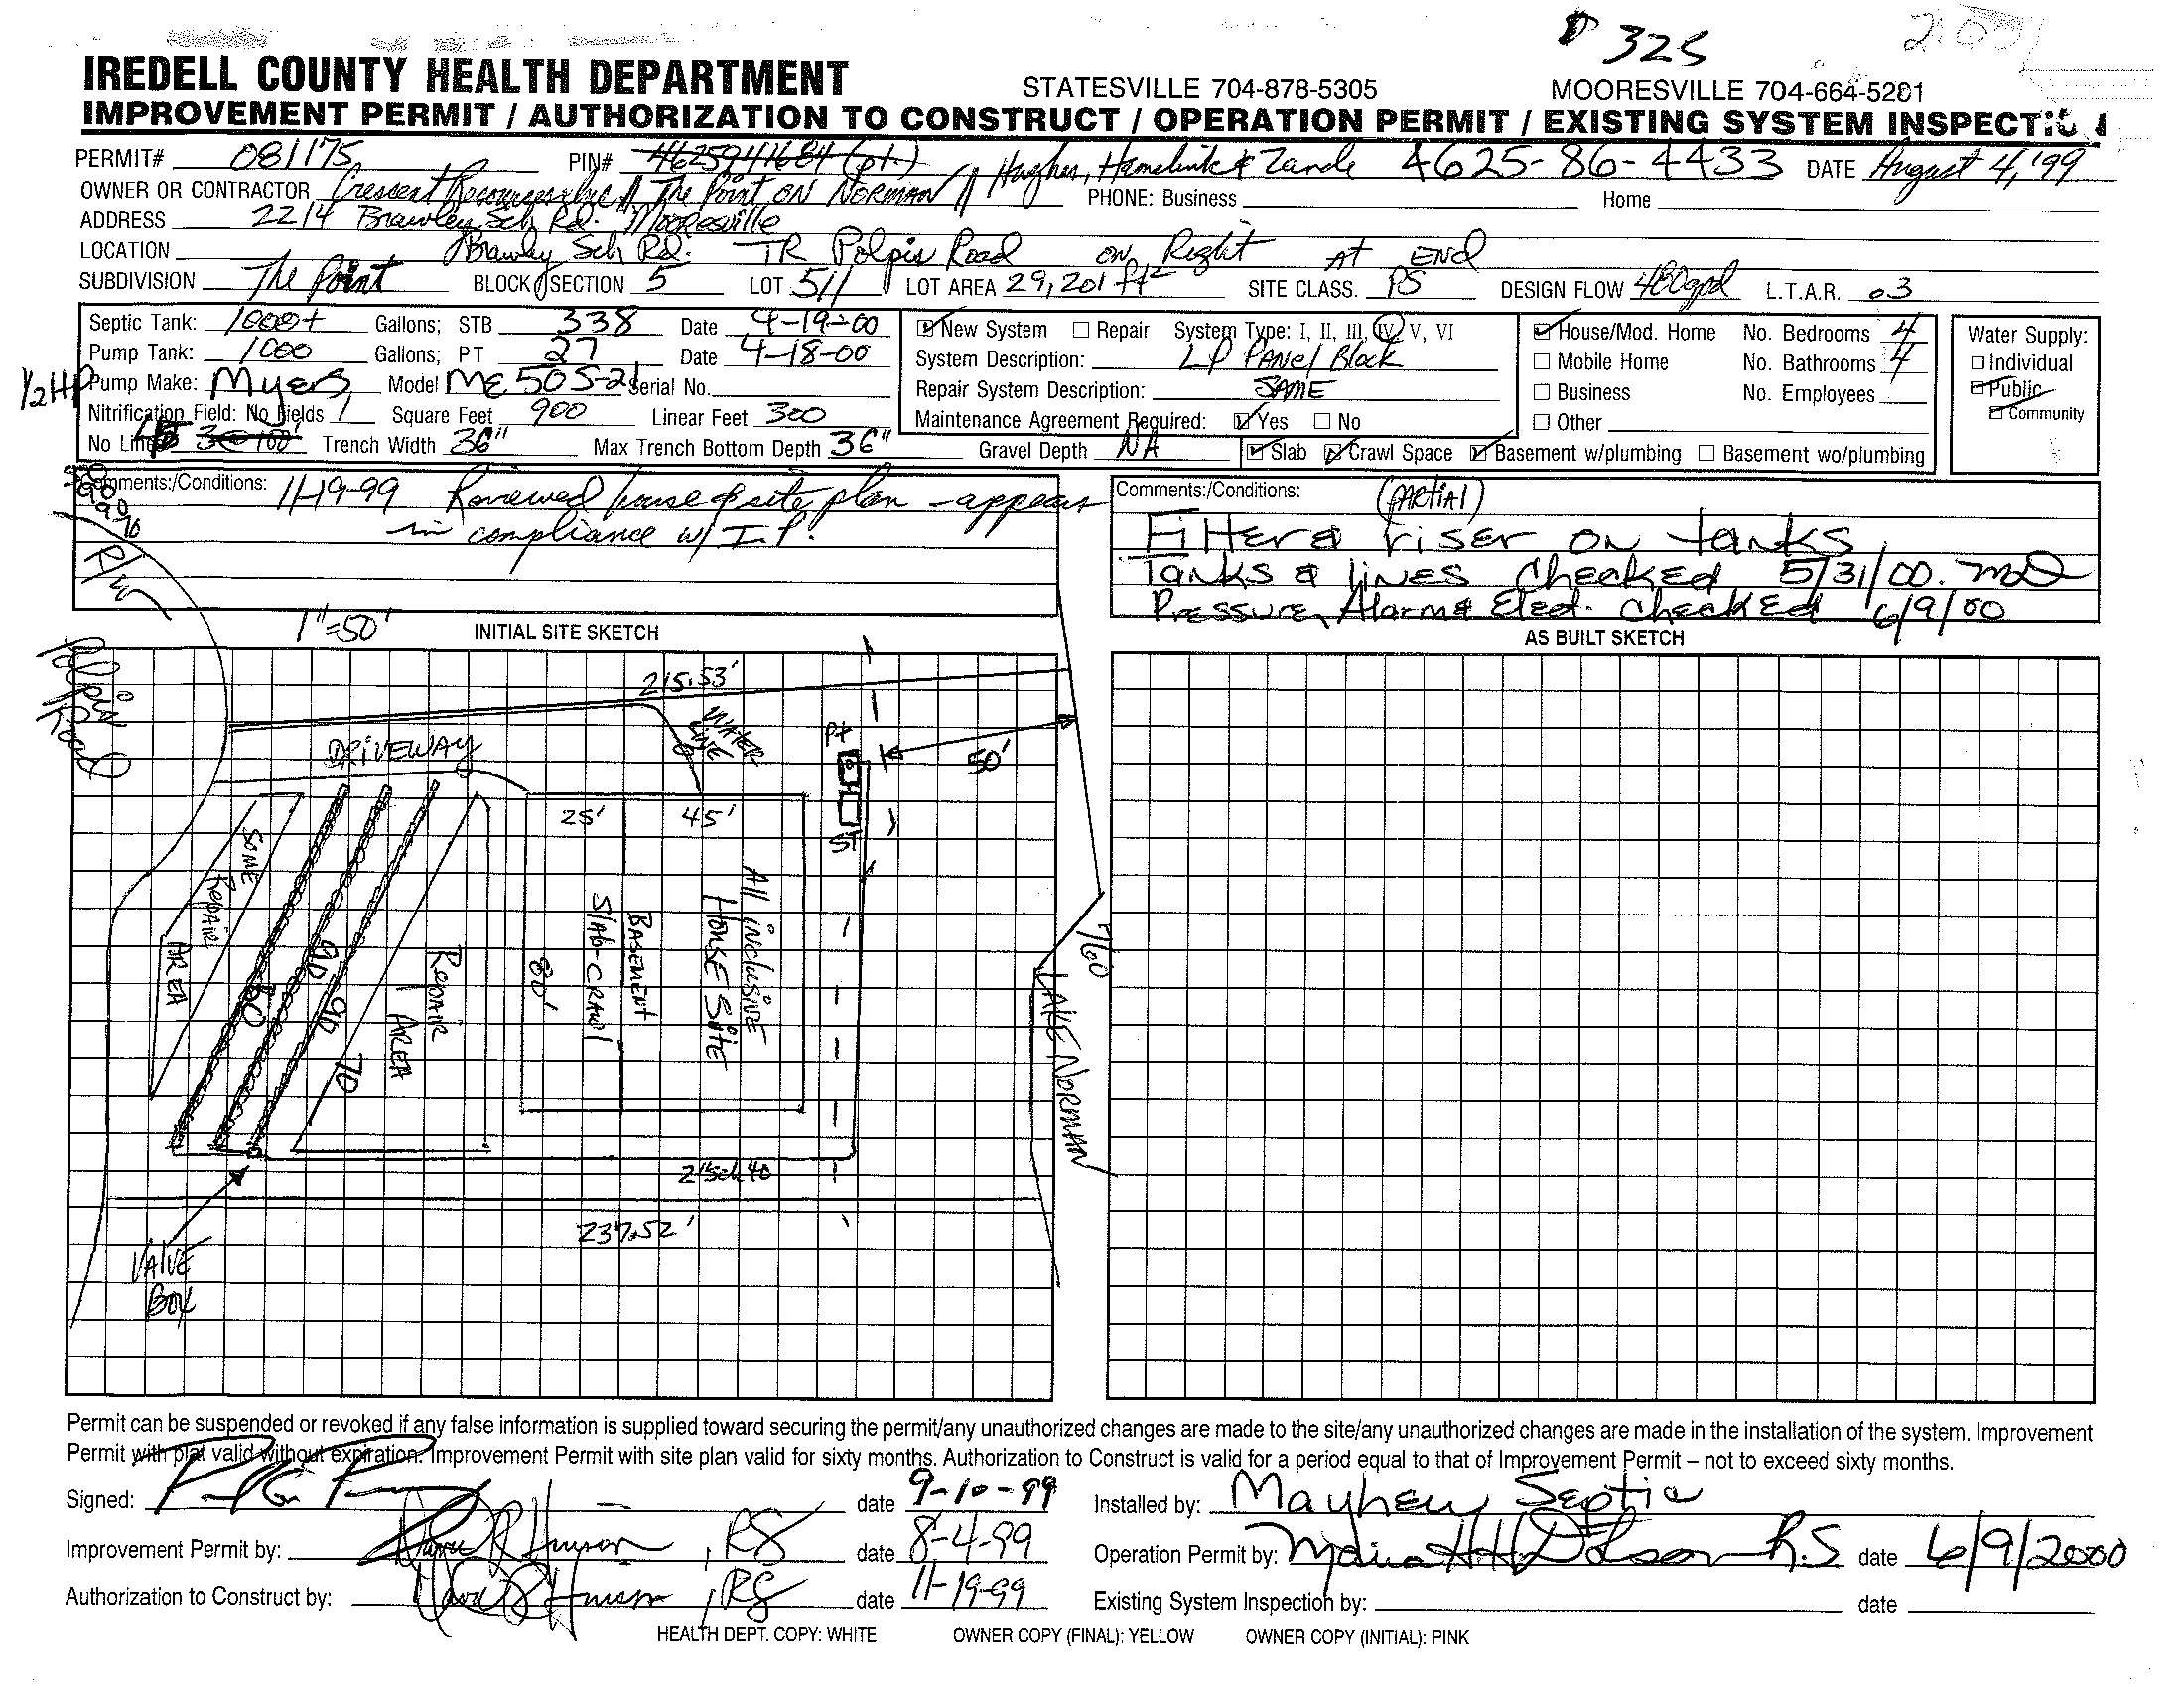 $ 325
IREDELL COUNTY HEALTH DEPARTMENT STATESVILLE 704-878-5305 MOORESVILLE 704-664-5201
IMPROVEMENT PERMIT / AUTHORIZATION TO CONSTRUCT / OPERATION PERMIT / EXISTING SYSTEM INSPECTION
PERMIT# 081175 PIN# 4625941684 (pt.) 4625-86-4433 DATE August 4, '99
OWNER OR CONTRACTOR Crescent Resources, Inc // The Point ON NORMAN // Hughes, Hamelink & Zande PHONE: Business Home
ADDRESS 2214 Brawley Sch Rd. Mooresville
LOCATION Brawley Sch Rd. TR Polpis Road ON Right AT END
SUBDIVISION The Point BLOCK/SECTION 5 LOT 511 LOT AREA 29,201 ft² SITE CLASS. PS DESIGN FLOW 480gpd L.T.A.R. .03
Septic Tank: 1000+ Gallons; STB 338 Date 4-19-00
Pump Tank: 1000 Gallons; PT 27 Date 4-18-00
1/2HP Pump Make: Myers Model ME 50S-21 Serial No.
Nitrification Field: No Fields 1 Square Feet 900 Linear Feet 300
No Lines 3@100' Trench Width 36" Max Trench Bottom Depth 36" Gravel Depth NA
New System Repair System Type: I, II, III, IV, V, VI
System Description: LP PANEL Block
Repair System Description: SAME
Maintenance Agreement Required: Yes No
House/Mod. Home No. Bedrooms 4
Mobile Home No. Bathrooms 4
Business No. Employees
Other
Slab Crawl Space Basement w/plumbing Basement wo/plumbing
Water Supply:
Individual
Public
Community
Comments:/Conditions: 11-19-99 Reviewed house & site plan - appears
in compliance w/ I.P.
90
70
R/W
Comments:/Conditions: (PARTIAL)
Filter & riser on tanks
Tanks & lines checked 5/31/00.
Pressure, Alarm & Elect. checked 6/9/00
1"=50' INITIAL SITE SKETCH
AS BUILT SKETCH
Polpis Road
215.53'
WATER LINE
DRIVEWAY
Pt
50'
25' 45'
ST
SOME REPAIR AREA
90
90
70
REPAIR AREA
80'
Slab-CRAWL
BASEMENT
All inclusive
House Site
760
LAKE NORMAN
2" Sch 40
237.52'
VALVE
BOX
Permit can be suspended or revoked if any false information is supplied toward securing the permit/any unauthorized changes are made to the site/any unauthorized changes are made in the installation of the system. Improvement
Permit with plat valid without expiration. Improvement Permit with site plan valid for sixty months. Authorization to Construct is valid for a period equal to that of Improvement Permit – not to exceed sixty months.
Signed: date 9-10-99 Installed by: Mayhew Septic
Improvement Permit by: , RS date 8-4-99 Operation Permit by: R.S date 6/9/2000
Authorization to Construct by: , RS date 11-19-99 Existing System Inspection by: date
HEALTH DEPT. COPY: WHITE OWNER COPY (FINAL): YELLOW OWNER COPY (INITIAL): PINK